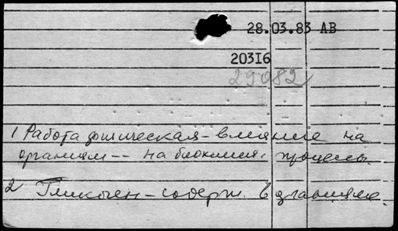 28.03.83 АВ
20316
29082
1 Работа физическая - влияние на
организм -- на биохимич. процессы.
2 Гликоген - содерж. в